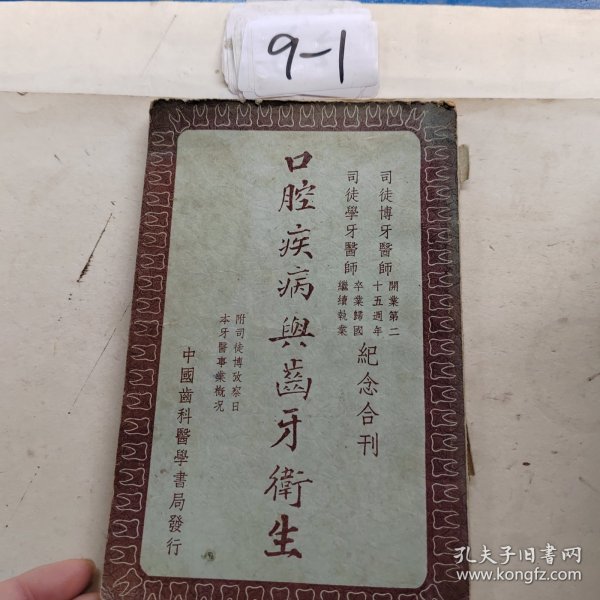 9-1
司徒博牙醫師
開業第二
十五週年
司徒學牙醫師
卒業歸國
繼續執業
紀念合刊
口腔疾病與齒牙衛生
附司徒博攷察日
本牙醫事業概况
中國齒科醫學書局發行
孔夫子旧书网
www.kongfz.com